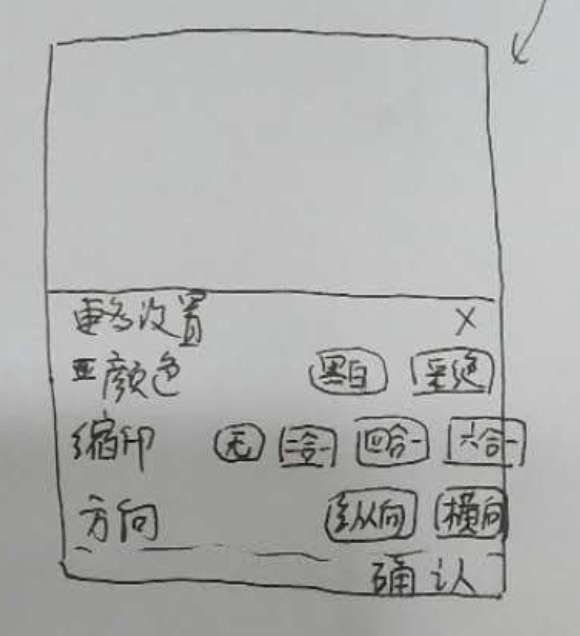 更多设置 X
颜色 黑白 彩绝
缩印 无 二合一 四合一 六合一
方向 纵向 横向
确认